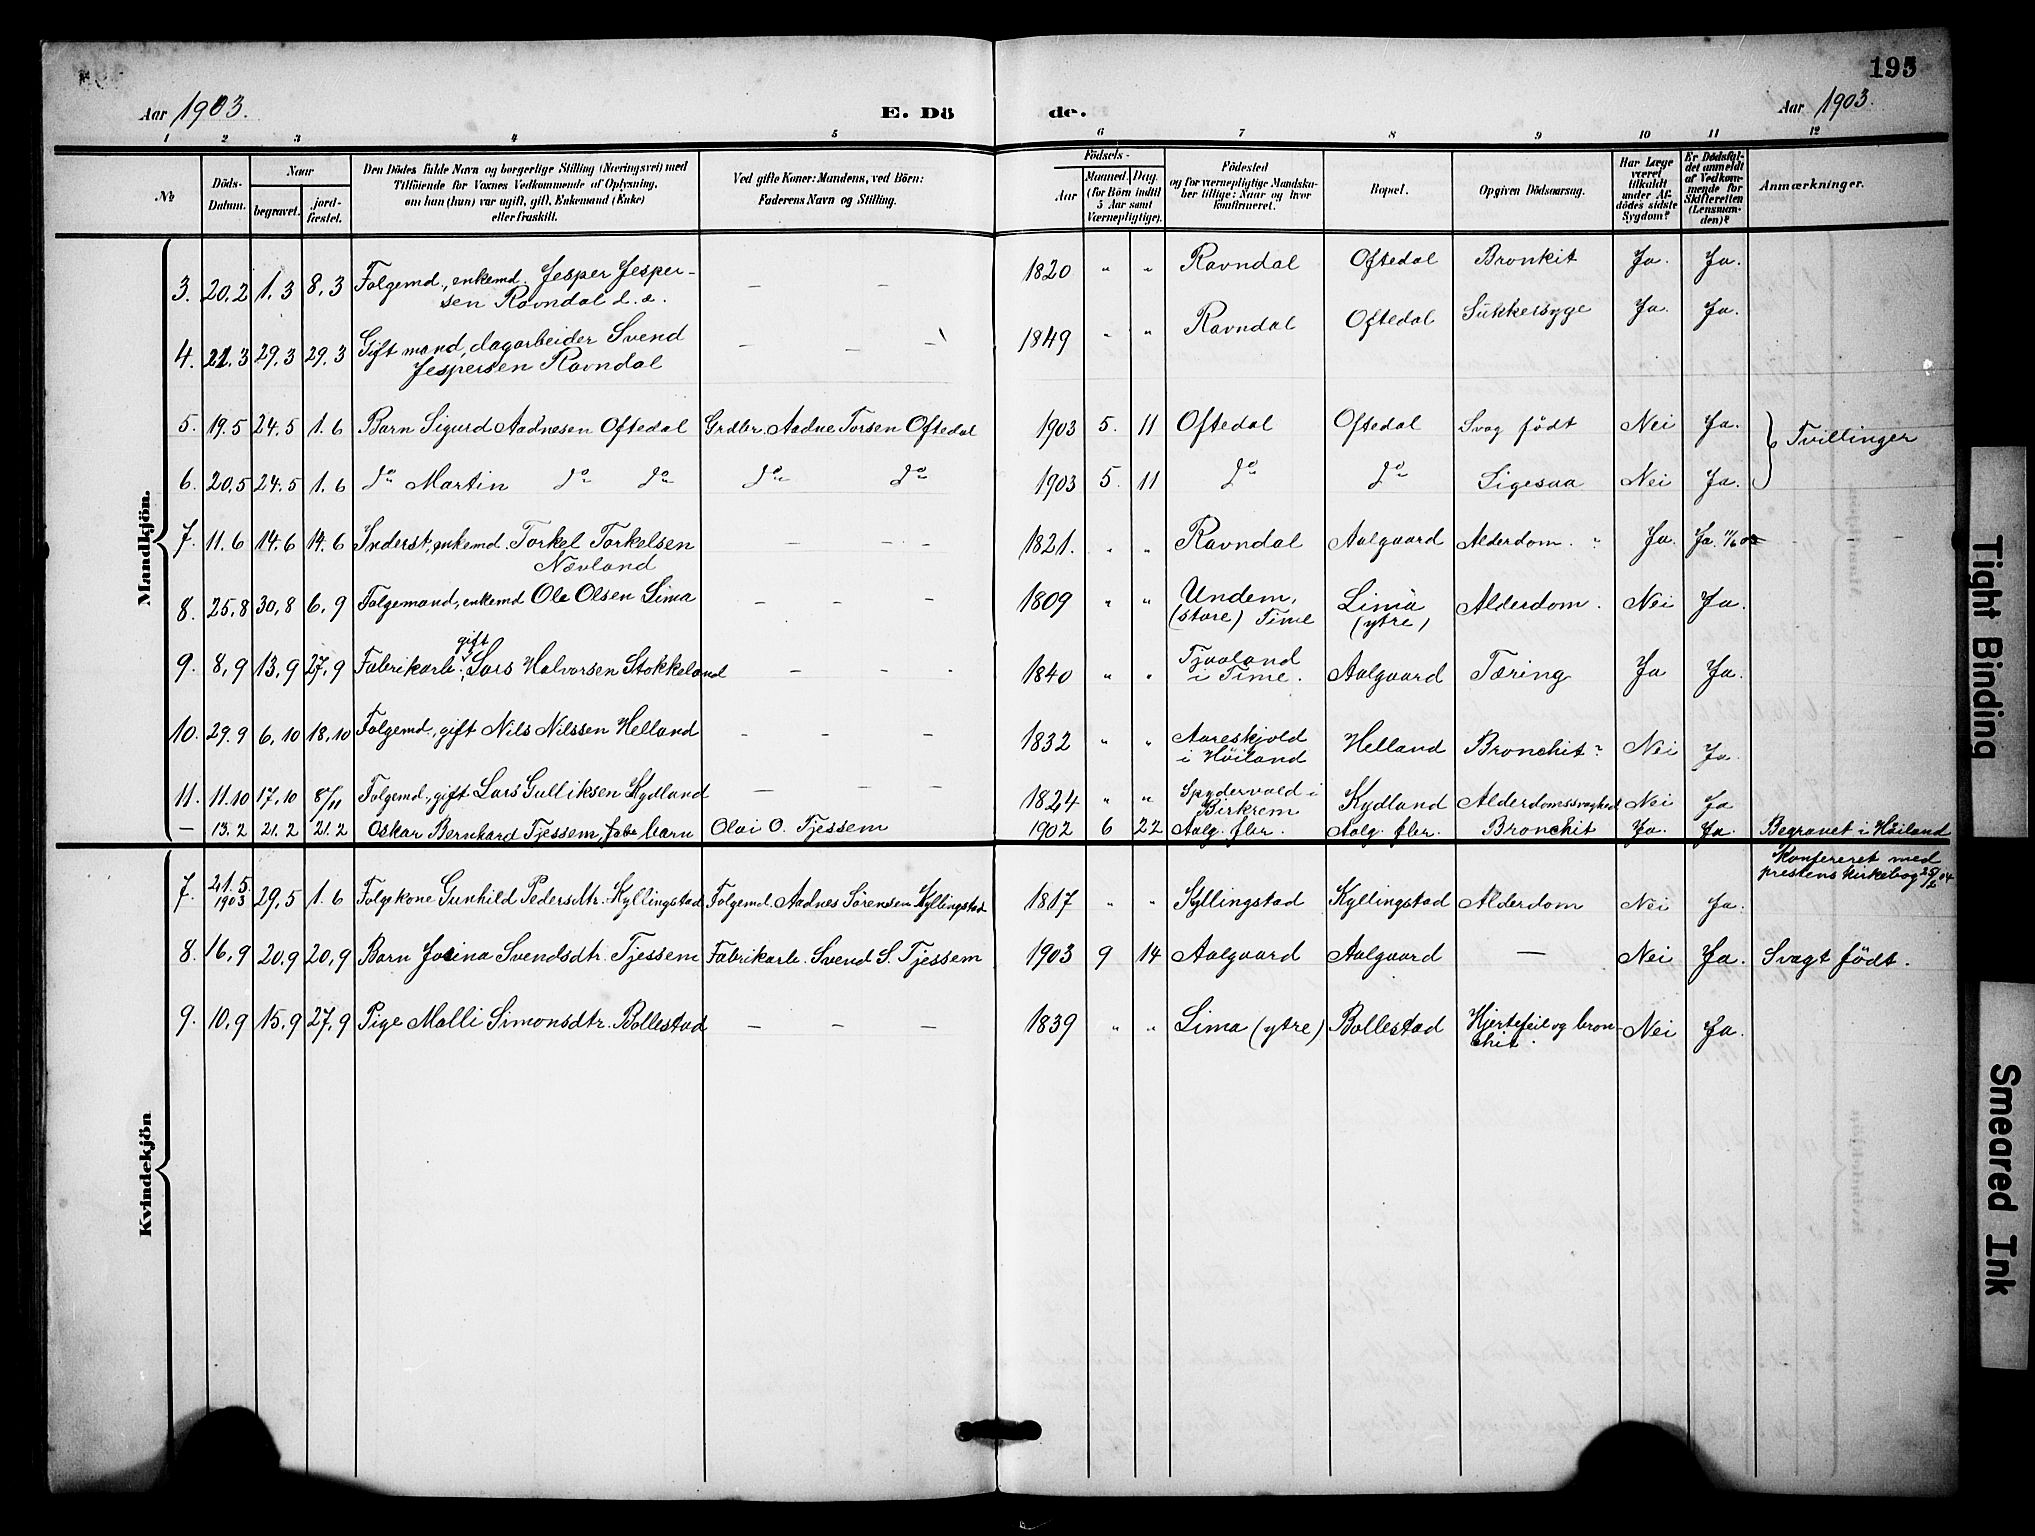 195
Aar 1903.
E. Dö
de.
Aar 1903.
1 2 3 4 5 6 7 8 9 10 11 12
No
Döds-
Datum.
Naar
begravet.
jord-
fæstet.
Den Dödes fulde Navn og borgerlige Stilling (Næringsvei) med
Tilföiende for Voxnes Vedkommende af Oplysning,
om han (hun) var ugift, gift, Enkemand (Enke)
eller fraskilt.
Ved gifte Koner: Mandens, ved Börn:
Faderens Navn og Stilling.
Födsels-
Aar
Maaned.
Dag.
(for Börn indtil
5 Aar samt
Værnepligtige).
Födested
og for værnepligtige Mandska-
ber tillige: Naar og hvor
konfirmeret.
Bopæl.
Opgiven Dödsaarsag.
Har Læge
været
tilkaldt
under Af-
dödes sidste
Sygdom?
Er Dödsfal-
det anmeldt
af Vedkom-
mende for
Skifteretten
(Lensman-
den)?
Anmærkninger.
Mandkjön.
3. 20,2 1,3 8,3 Folgemd., enkemd. Jesper Jesper- — — 1820 " " Ravndal Oftedal Bronkit Ja. Ja.
sen Ravndal d. æ.
4. 21.3 29,3 29,3 Gift mand, dagarbeider Svend — — — 1849 " " Ravndal Oftedal Sukkersyge Ja. Ja.
Jespersen Ravndal
5. 19.5 24.5 1.6 Barn Sigurd Aadnesen Oftedal Grdbr. Aadne Torsen Oftedal 1903 5. 11 Oftedal Oftedal Svag födt Nei Ja.
} Tvillinger
6. 20,5 24.5 1.6 do Martin do do do do 1903 5. 11 do do Ligesaa Nei Ja.
7. 11.6 14.6 14.6 Inderst, enkemd. Torkel Torkelsen — — — 1821. " " Ravndal Aalgaard Alderdom. " Ja. Ja. 11/6 03
Nævland
8. 25.8 30,8 6,9 Folgemand, enkemd Ole Olsen Lima — — — 1809 " " Undem, Lima Alderdom. Nei Ja.
(store) Time (ytre)
gift
9. 8,9 13,9 27,9 Fabrikarb., Lars Halvorsen Stokkeland — — - 1840 " " Tjaaland Aalgaard Tæring Ja Ja.
i Time.
10. 29.9 6,10 18,10 Folgemd., gift Nils Nilssen Helland — — — 1832 " " Aareskjold Helland Bronchit Nei Ja.
i Höiland
11. 11.10 17,10 8/11 Folgemd., gift Lars Gulliksen Kydland — — — 1824 " " Spydervold i Kydland Alderdomssvaghed Nei Ja
Birkrem
— 13.2 21.2 21.2 Oskar Bernhard Tjessem, fabr. barn Olai O. Tjessem 1902 6 22 Aalg. fbr. Aalg. fbr. Bronchit Ja. Ja. Begravet i Höiland
Konfereret med
prestens kirkebog 25/2 04
Kvindekjön
7. 21.5 1903 29,5 1.6 Folgekone Gunhild Pedersdtr. Kyllingstad Folgemd. Aadnes Sörensen Kyllingstad 1817 " " Kyllingstad Kyllingstad Alderdom Nei Ja.
8. 16,9 20,9 20,9 Barn Josina Svendsdtr. Tjessem Fabrikarb. Svend S. Tjessem 1903 9 14 Aalgaard Aalgaard — Nei Ja. Svagt födt.
9. 10,9 15,9 27,9 Pige Malli Simonsdtr. Bollestad — — — 1839 " " Lima (ytre) Bollestad Hjertefeil og bron- Nei Ja.
chit.
Tight Binding
Smeared Ink